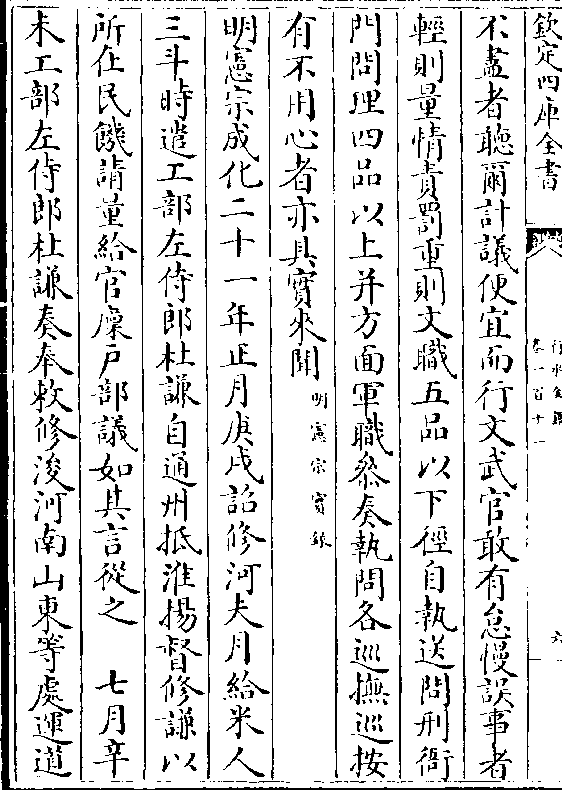 欽定四庫全書
行水金鑑
卷一百十一
六
不盡者聽爾計議便宜而行文武官敢有怠慢誤事者
輕則量情責罰重則文職五品以下徑自執送問刑衙
門問理四品以上并方面軍職叅奏執問各巡撫巡按
有不用心者亦具實來聞明憲宗實錄
明憲宗成化二十一年正月庚戌詔修河夫月給米人
三斗時遣工部左侍郎杜謙自通州抵淮揚督修謙以
所在民饑請量給官廩户部議如其言從之　七月辛
未工部左侍郎杜謙奏奉敕修浚河南山東等處運道